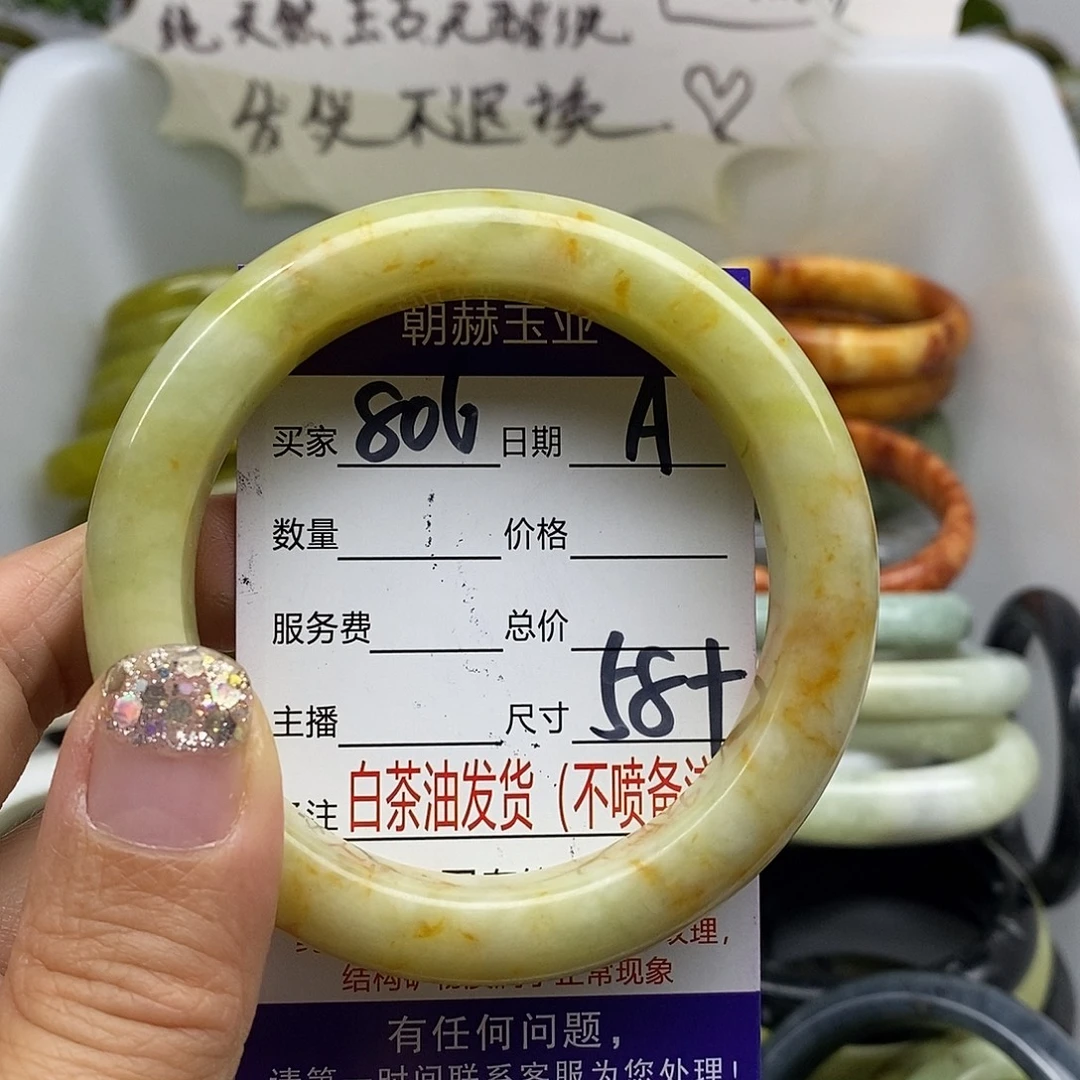 纯天然玉石无酸洗
售后不退换
朝赫玉业
买家 806 日期 A
数量 价格
服务费 总价
主播 尺寸 58+
注 白茶油发货（不喷备注
纹理，
结构 正常现象
有任何问题，
请第一时间联系客服为您处理！